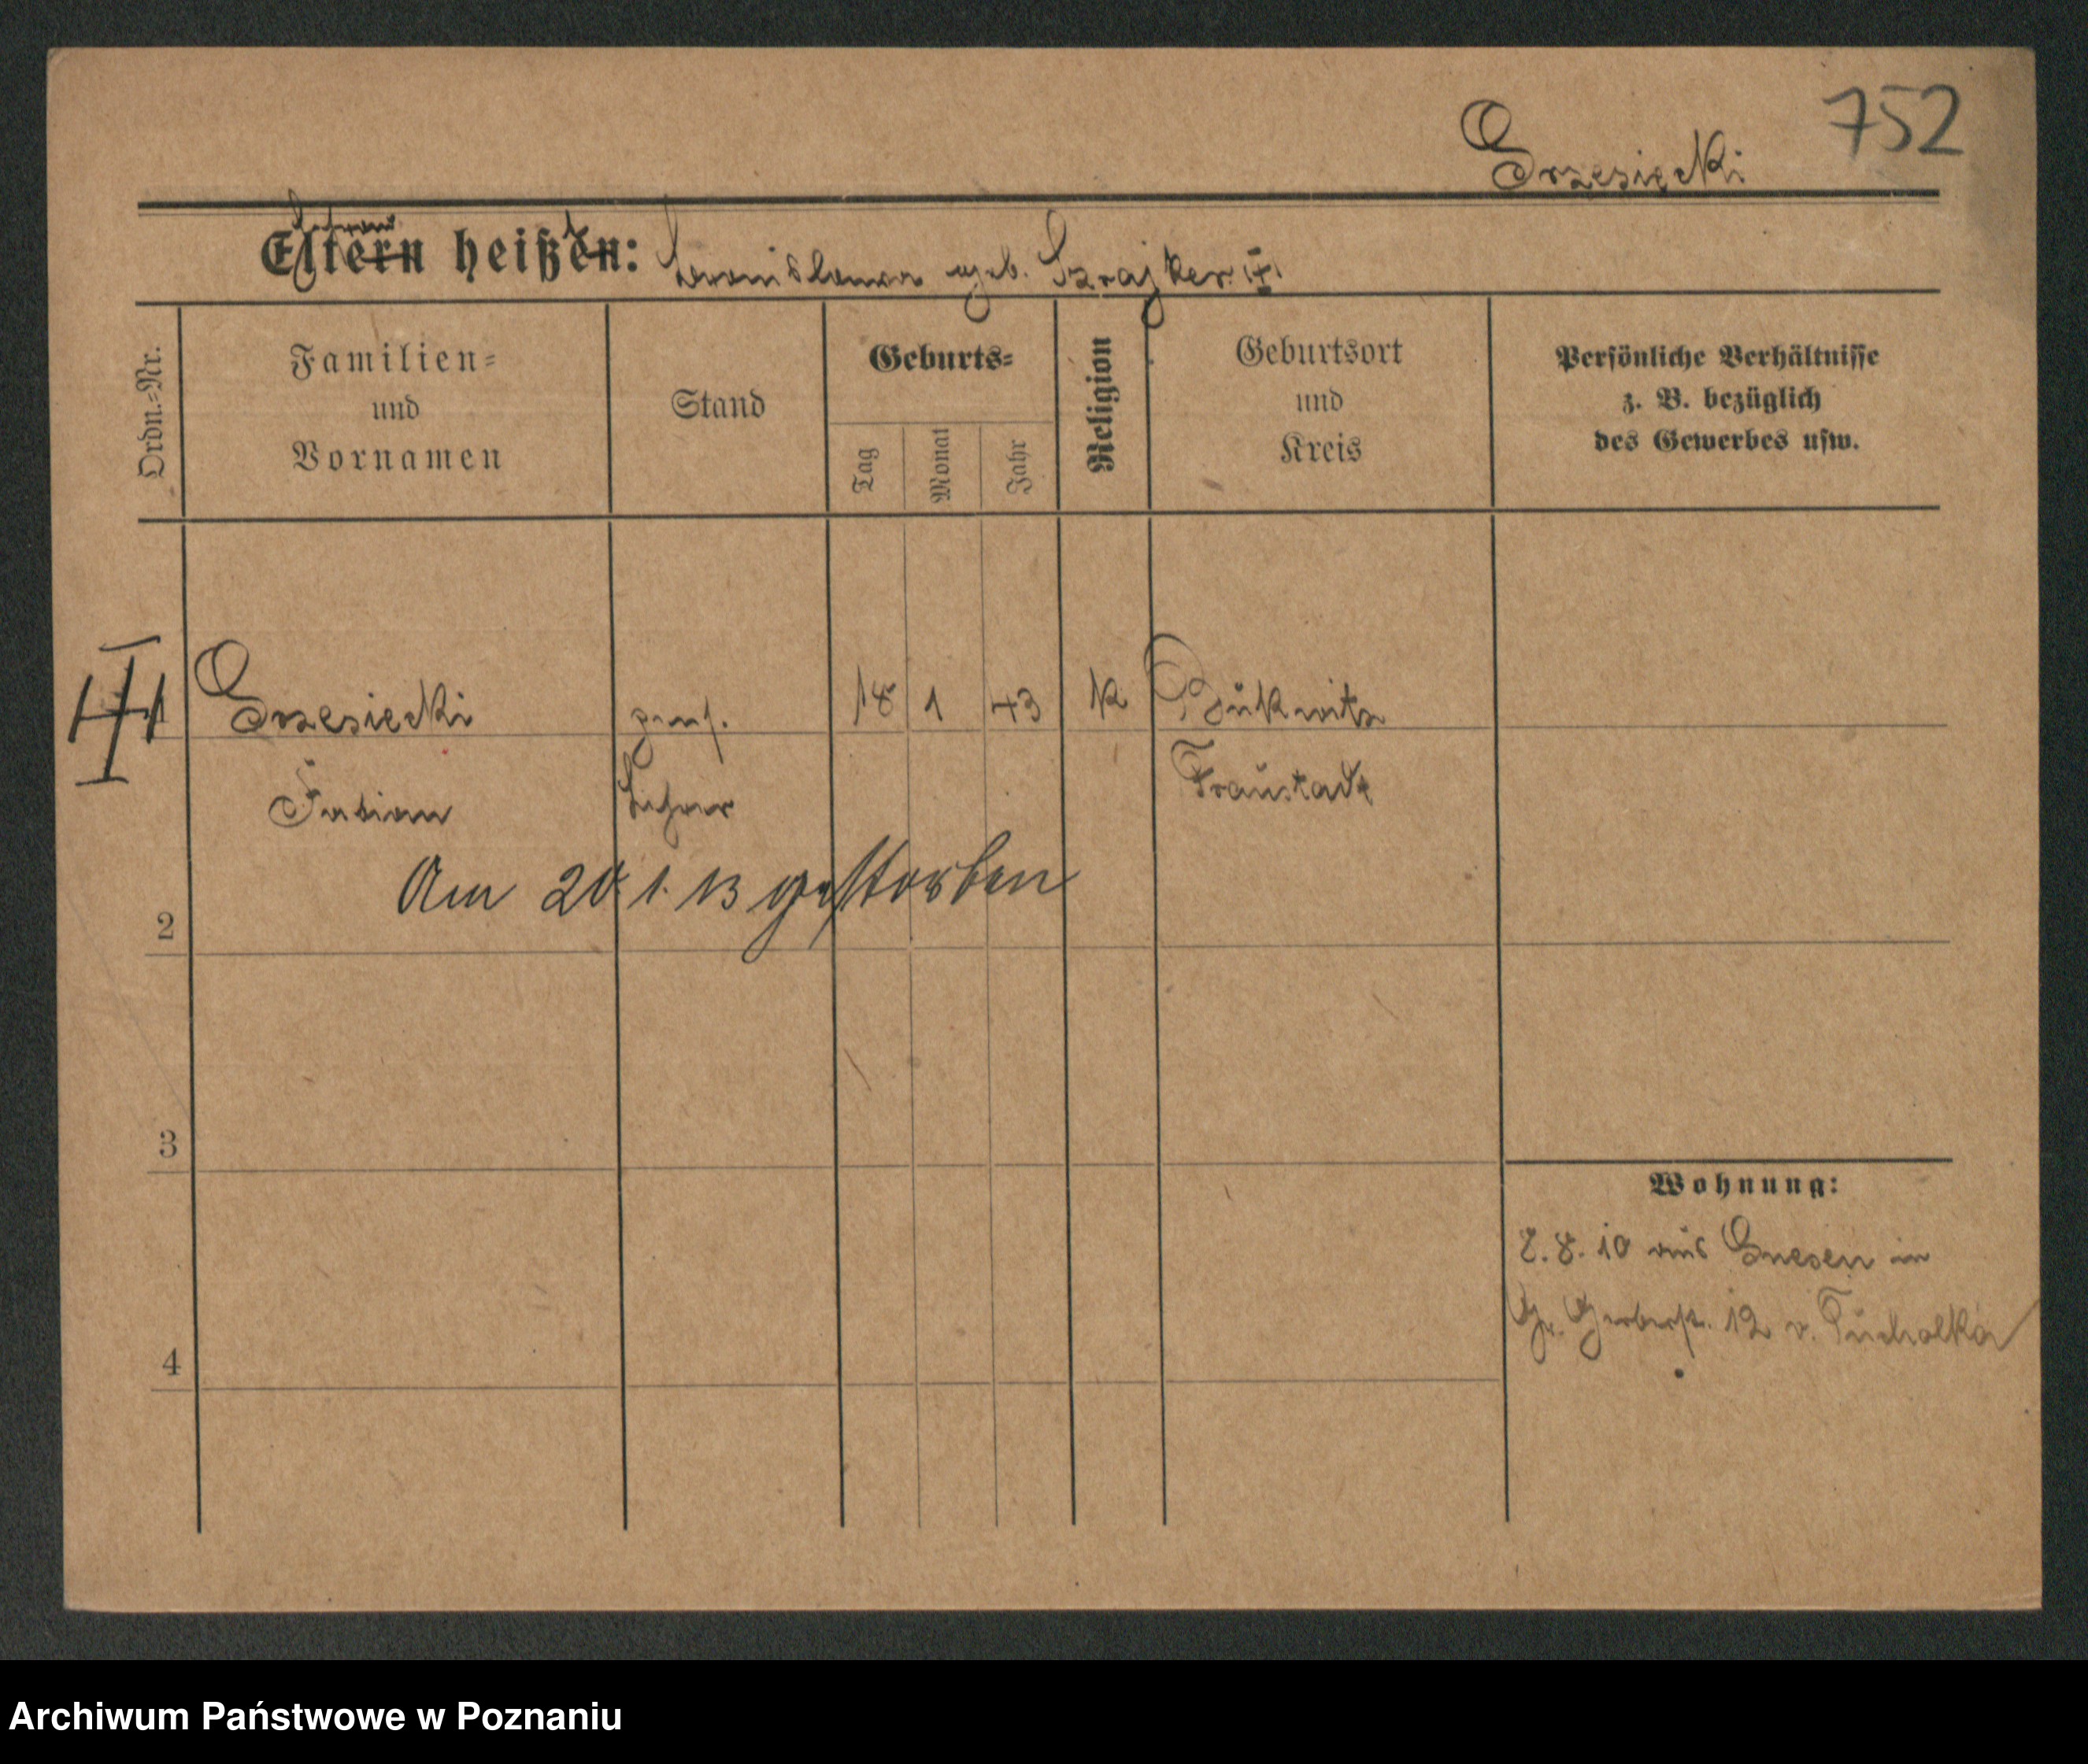 752
Grzesiecki
Ehefrau
Eltern heißen: Stanislawa geb. Szrajber
Ordn.=Nr.
Familien=
und
Vornamen
Stand
Geburts=
Tag
Monat
Jahr
Religion
Geburtsort
und
Kreis
Persönliche Verhältnisse
z. B. bezüglich
des Gewerbes usw.
1 Grzesiecki pens. 18 1 43 K Bukwitz
Fabian Lehrer Fraustadt
Am 20. 1. 13 gestorben
2
3
Wohnung:
2. 8. 10 aus Gnesen in
Gr. Gerberst. 12 v. Tucholka
4
Archiwum Państwowe w Poznaniu